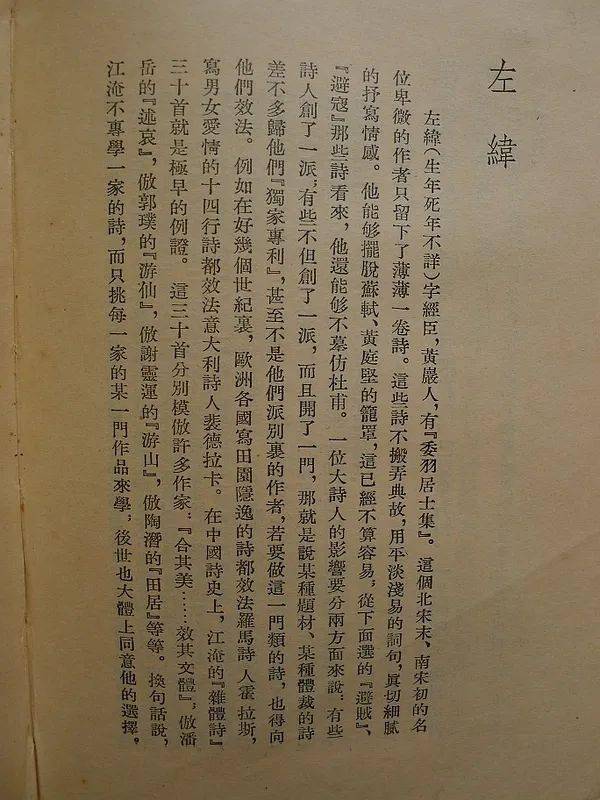 左緯
左緯（生年死年不詳）字經臣，黃巖人，有『委羽居士集』。這個北宋末、南宋初的名
位卑微的作者只留下了薄薄一卷詩。這些詩不搬弄典故，用平淡淺易的詞句，眞切細膩
的抒寫情感。他能够擺脫蘇軾、黃庭堅的籠罩，這已經不算容易；從下面選的『避賊』、
『避寇』那些詩看來，他還能够不摹仿杜甫。一位大詩人的影響要分兩方面來說：有些
詩人創了一派；有些不但創了一派，而且開了一門，那就是說某種題材、某種體裁的詩
差不多歸他們『獨家專利』，甚至不是他們派別裏的作者，若要做這一門類的詩，也得向
他們效法。例如在好幾個世紀裏，歐洲各國寫田園隱逸的詩都效法羅馬詩人霍拉斯，
寫男女愛情的十四行詩都效法意大利詩人裴德拉卡。在中國詩史上，江淹的『雜體詩』
三十首就是極早的例證。這三十首分別模倣許多作家：『合其美……效其文體』，倣潘
岳的『述哀』，倣郭璞的『游仙』，倣謝靈運的『游山』，倣陶潛的『田居』等等。換句話說，
江淹不專學一家的詩，而只挑每一家的某一門作品來學，後世也大體上同意他的選擇。